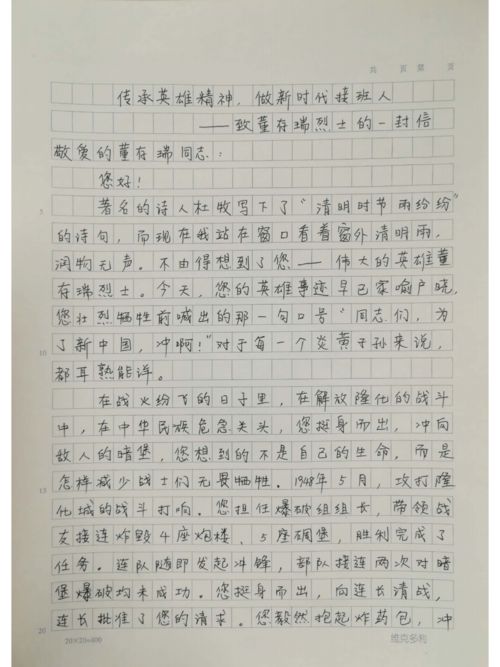 共 页 第 页
传承英雄精神，做新时代接班人
——致董存瑞烈士的一封信
敬爱的董存瑞同志：
您好！
5 著名的诗人杜牧写下了“清明时节雨纷纷”
的诗句，而现在我站在窗口看着窗外清明雨，
润物无声。不由得想到了您——伟大的英雄董
存瑞烈士。今天，您的英雄事迹早已家喻户晓，
您壮烈牺牲前喊出的那一句口号“同志们，为
10 了新中国，冲啊！”对于每一个炎黄子孙来说，
都耳熟能详。
在战火纷飞的日子里，在解放隆化的战斗
中，在中华民族危急关头，您挺身而出，冲向
敌人的暗堡，您想到的不是自己的生命，而是
15 怎样减少战士们无畏牺牲。1948年5月，攻打隆
化城的战斗打响。您担任爆破组组长，带领战
友接连炸毁4座炮楼、5座碉堡，胜利完成了
任务。连队随即发起冲锋，部队接连两次对暗
堡爆破均未成功。您挺身而出，向连长请战，
20 连长批准了您的请求。您毅然抱起炸药包，冲
20×20=400 维克多利